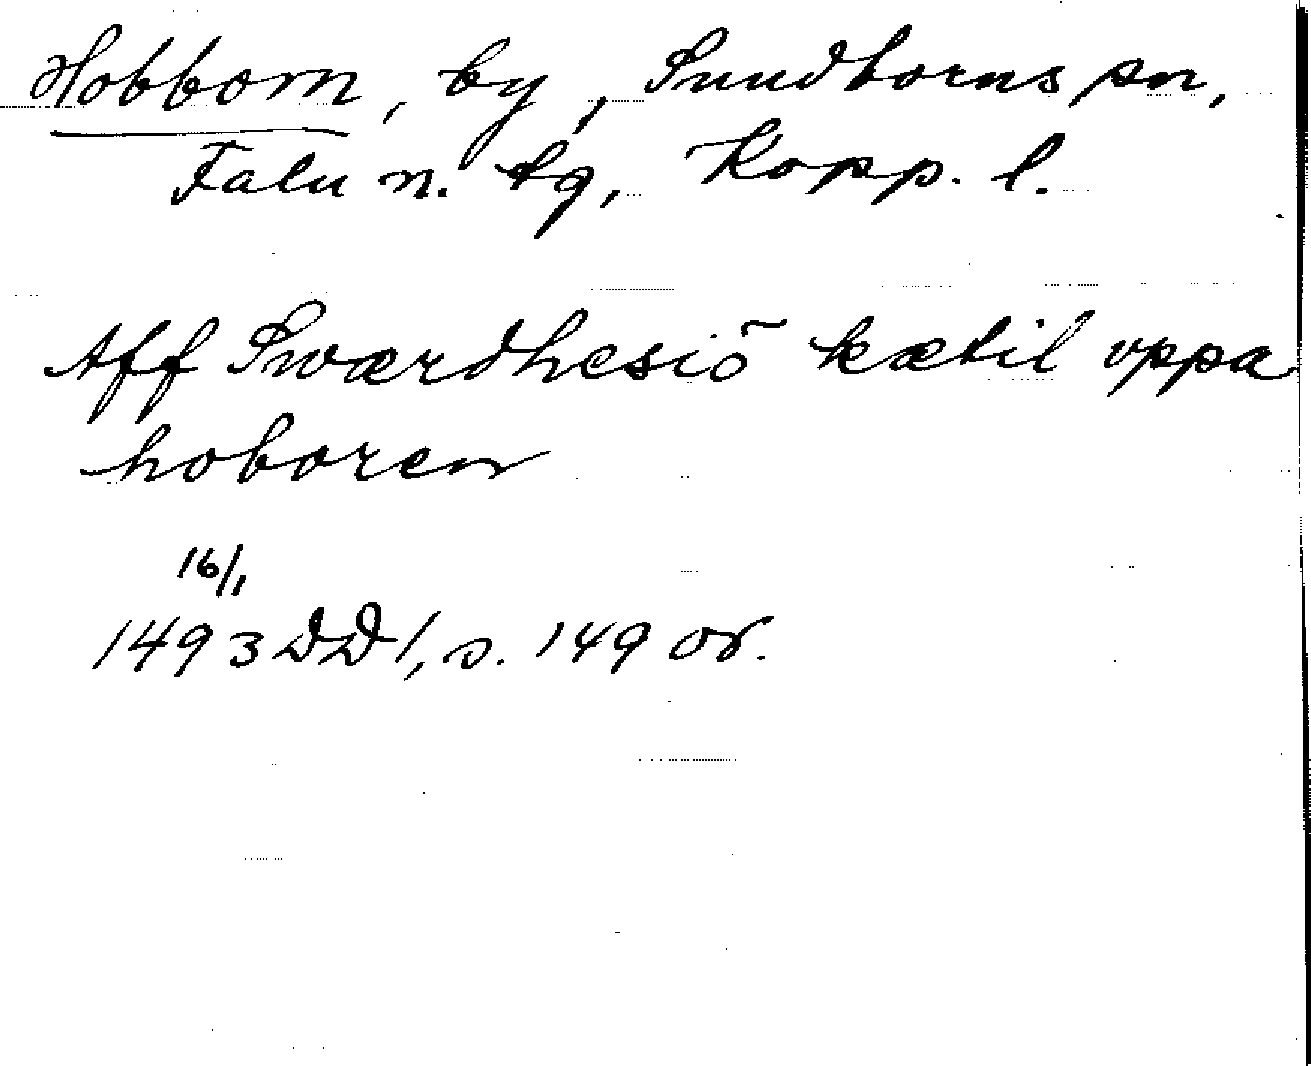 Hobborn, by, Sundborns sn,
Falu n. tg, Kopp. l.
Aff Swærdhesiö kætil vppa
hoboren
16/1
1493 DD 1, s. 149 or.